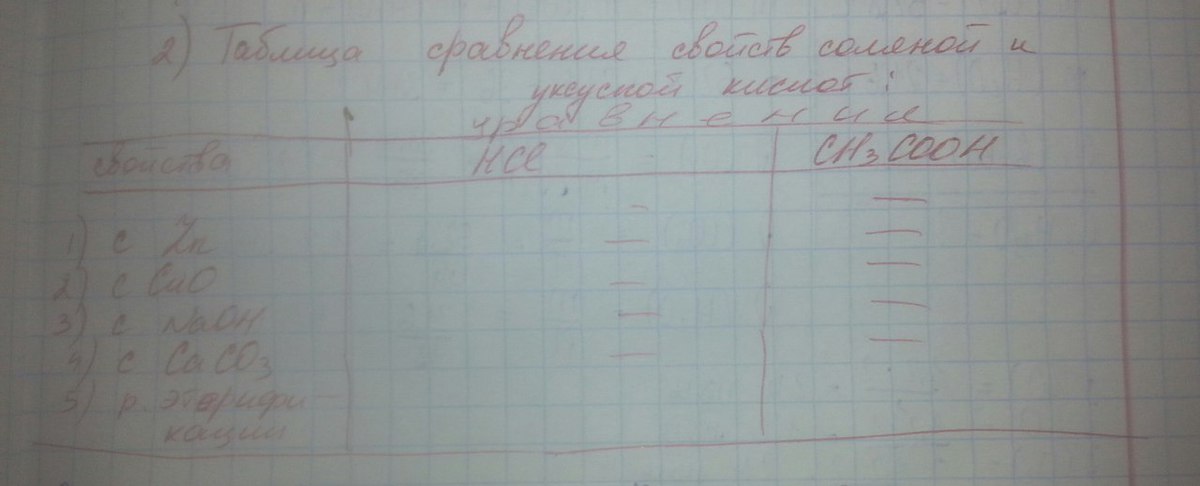 2) Таблица сравнения свойств соляной и
уксусной кислот:
уравнения
свойства HCl CH₃COOH
— —
1) с Zn — —
2) с CuO — —
3) с NaOH — —
4) с CaCO₃ — —
5) р. этерифи-
кации